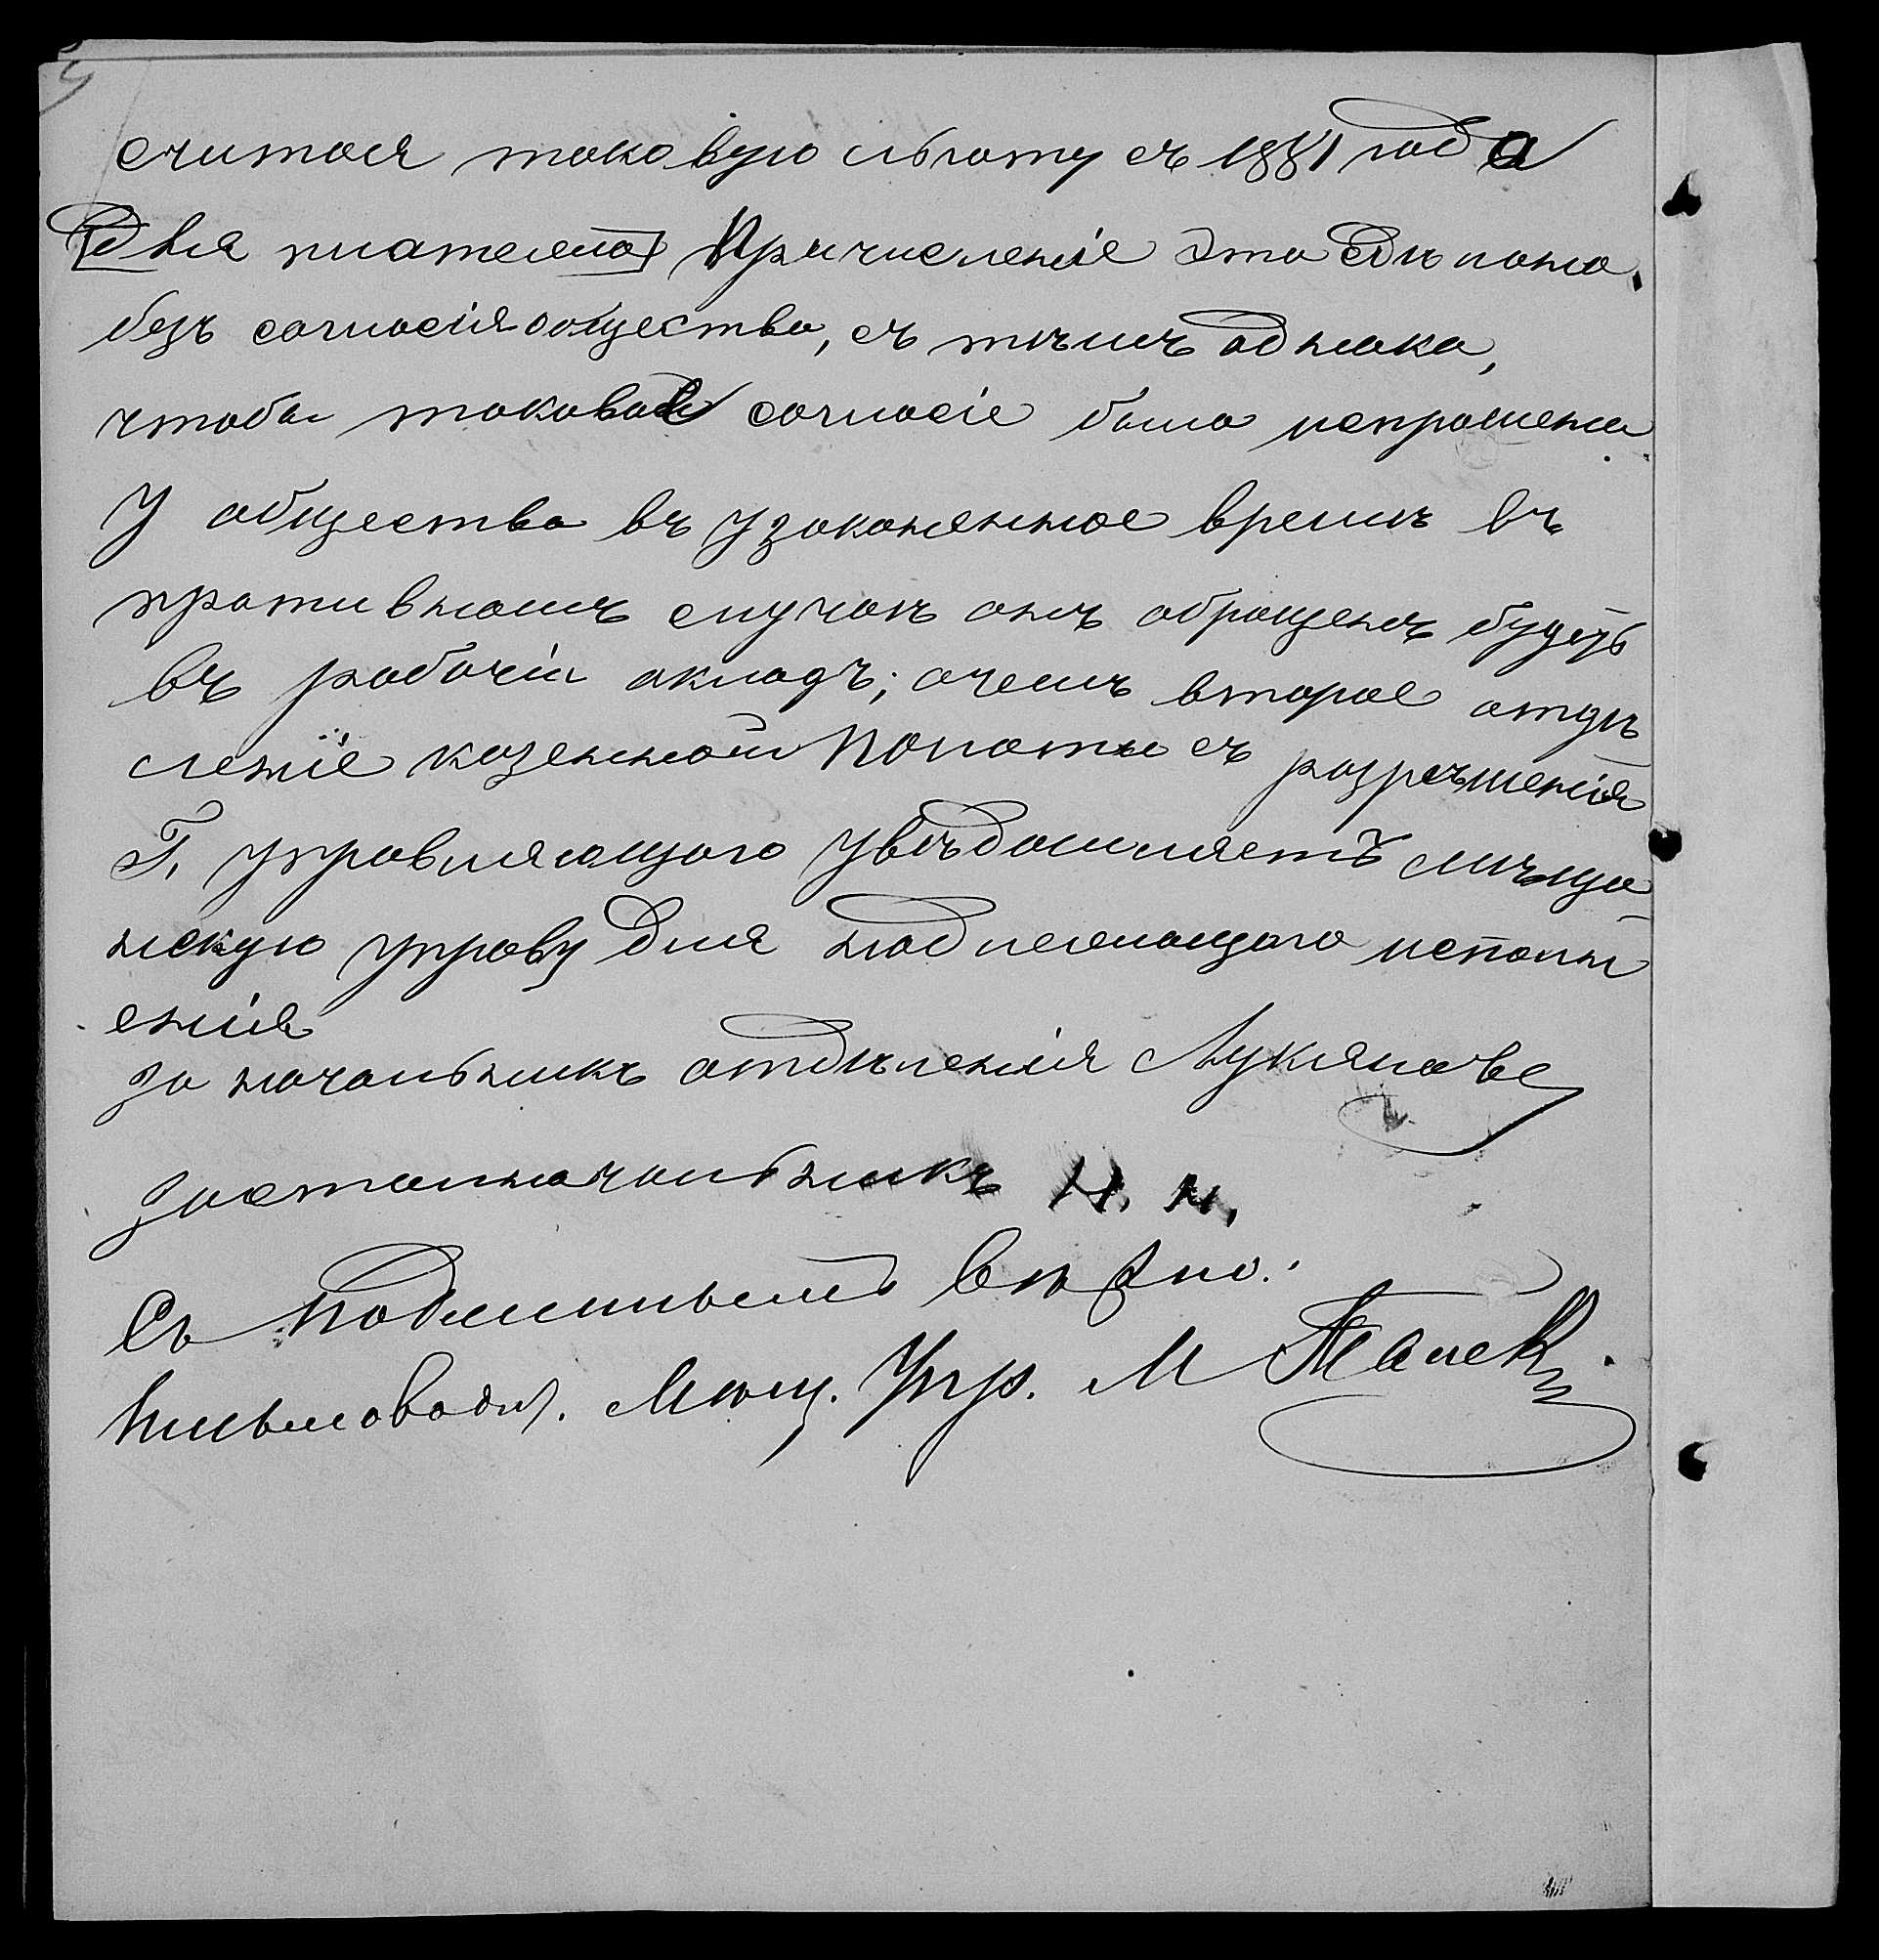 считая таковую льготу съ 1881 года
[два платежа] Причисленіе это сдѣлано
безъ согласія общества, съ тѣмъ однако,
чтобы таковое согласіе было испрошено
У общества въ узаконенное время въ
противномъ случаѣ онъ обращенъ будетъ
въ рабочій окладъ; о чемъ второе отдѣ
леніе казенной Полаты съ разрѣшенія
Г. управляющаго увѣдомляетъ мѣща
нскую управу для надлежащаго исполн
енія
за начальникъ отдѣленія Лукяновъ
за столначальникъ Н. Н.
Съ подлиннымъ вѣрно:
Письмовод. Мѣщ. Упр. М